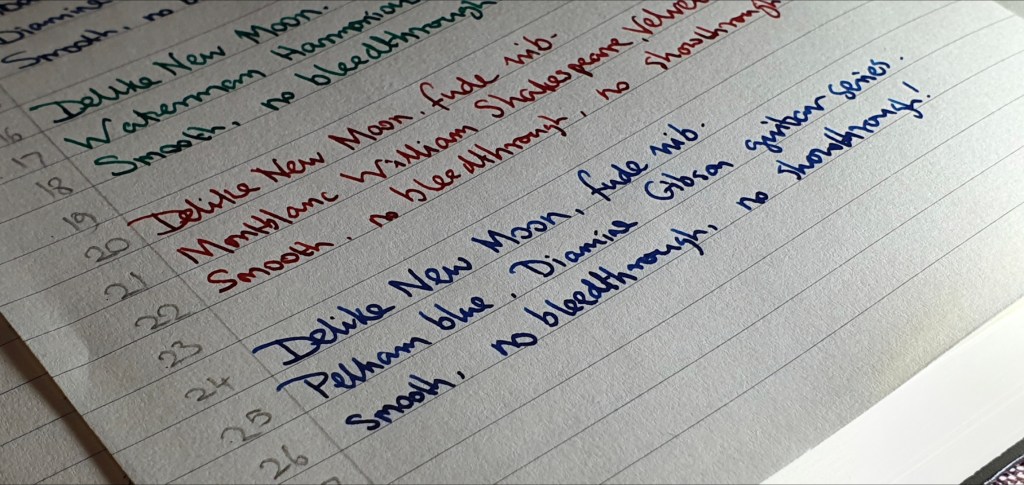 Diamine
Smooth, no b
Delike New Moon.
Waterman Harmonious
Smooth, no bleedthrough
Delike New Moon. fude nib.
Montblanc William Shakespeare Velvet
Smooth, no bleedthrough, no showthrough
Delike New Moon, fude nib.
Pelham blue, Diamine Gibson guitar series.
Smooth, no bleedthrough, no showthrough!
16
17
18
19
20
21
22
23
24
25
26